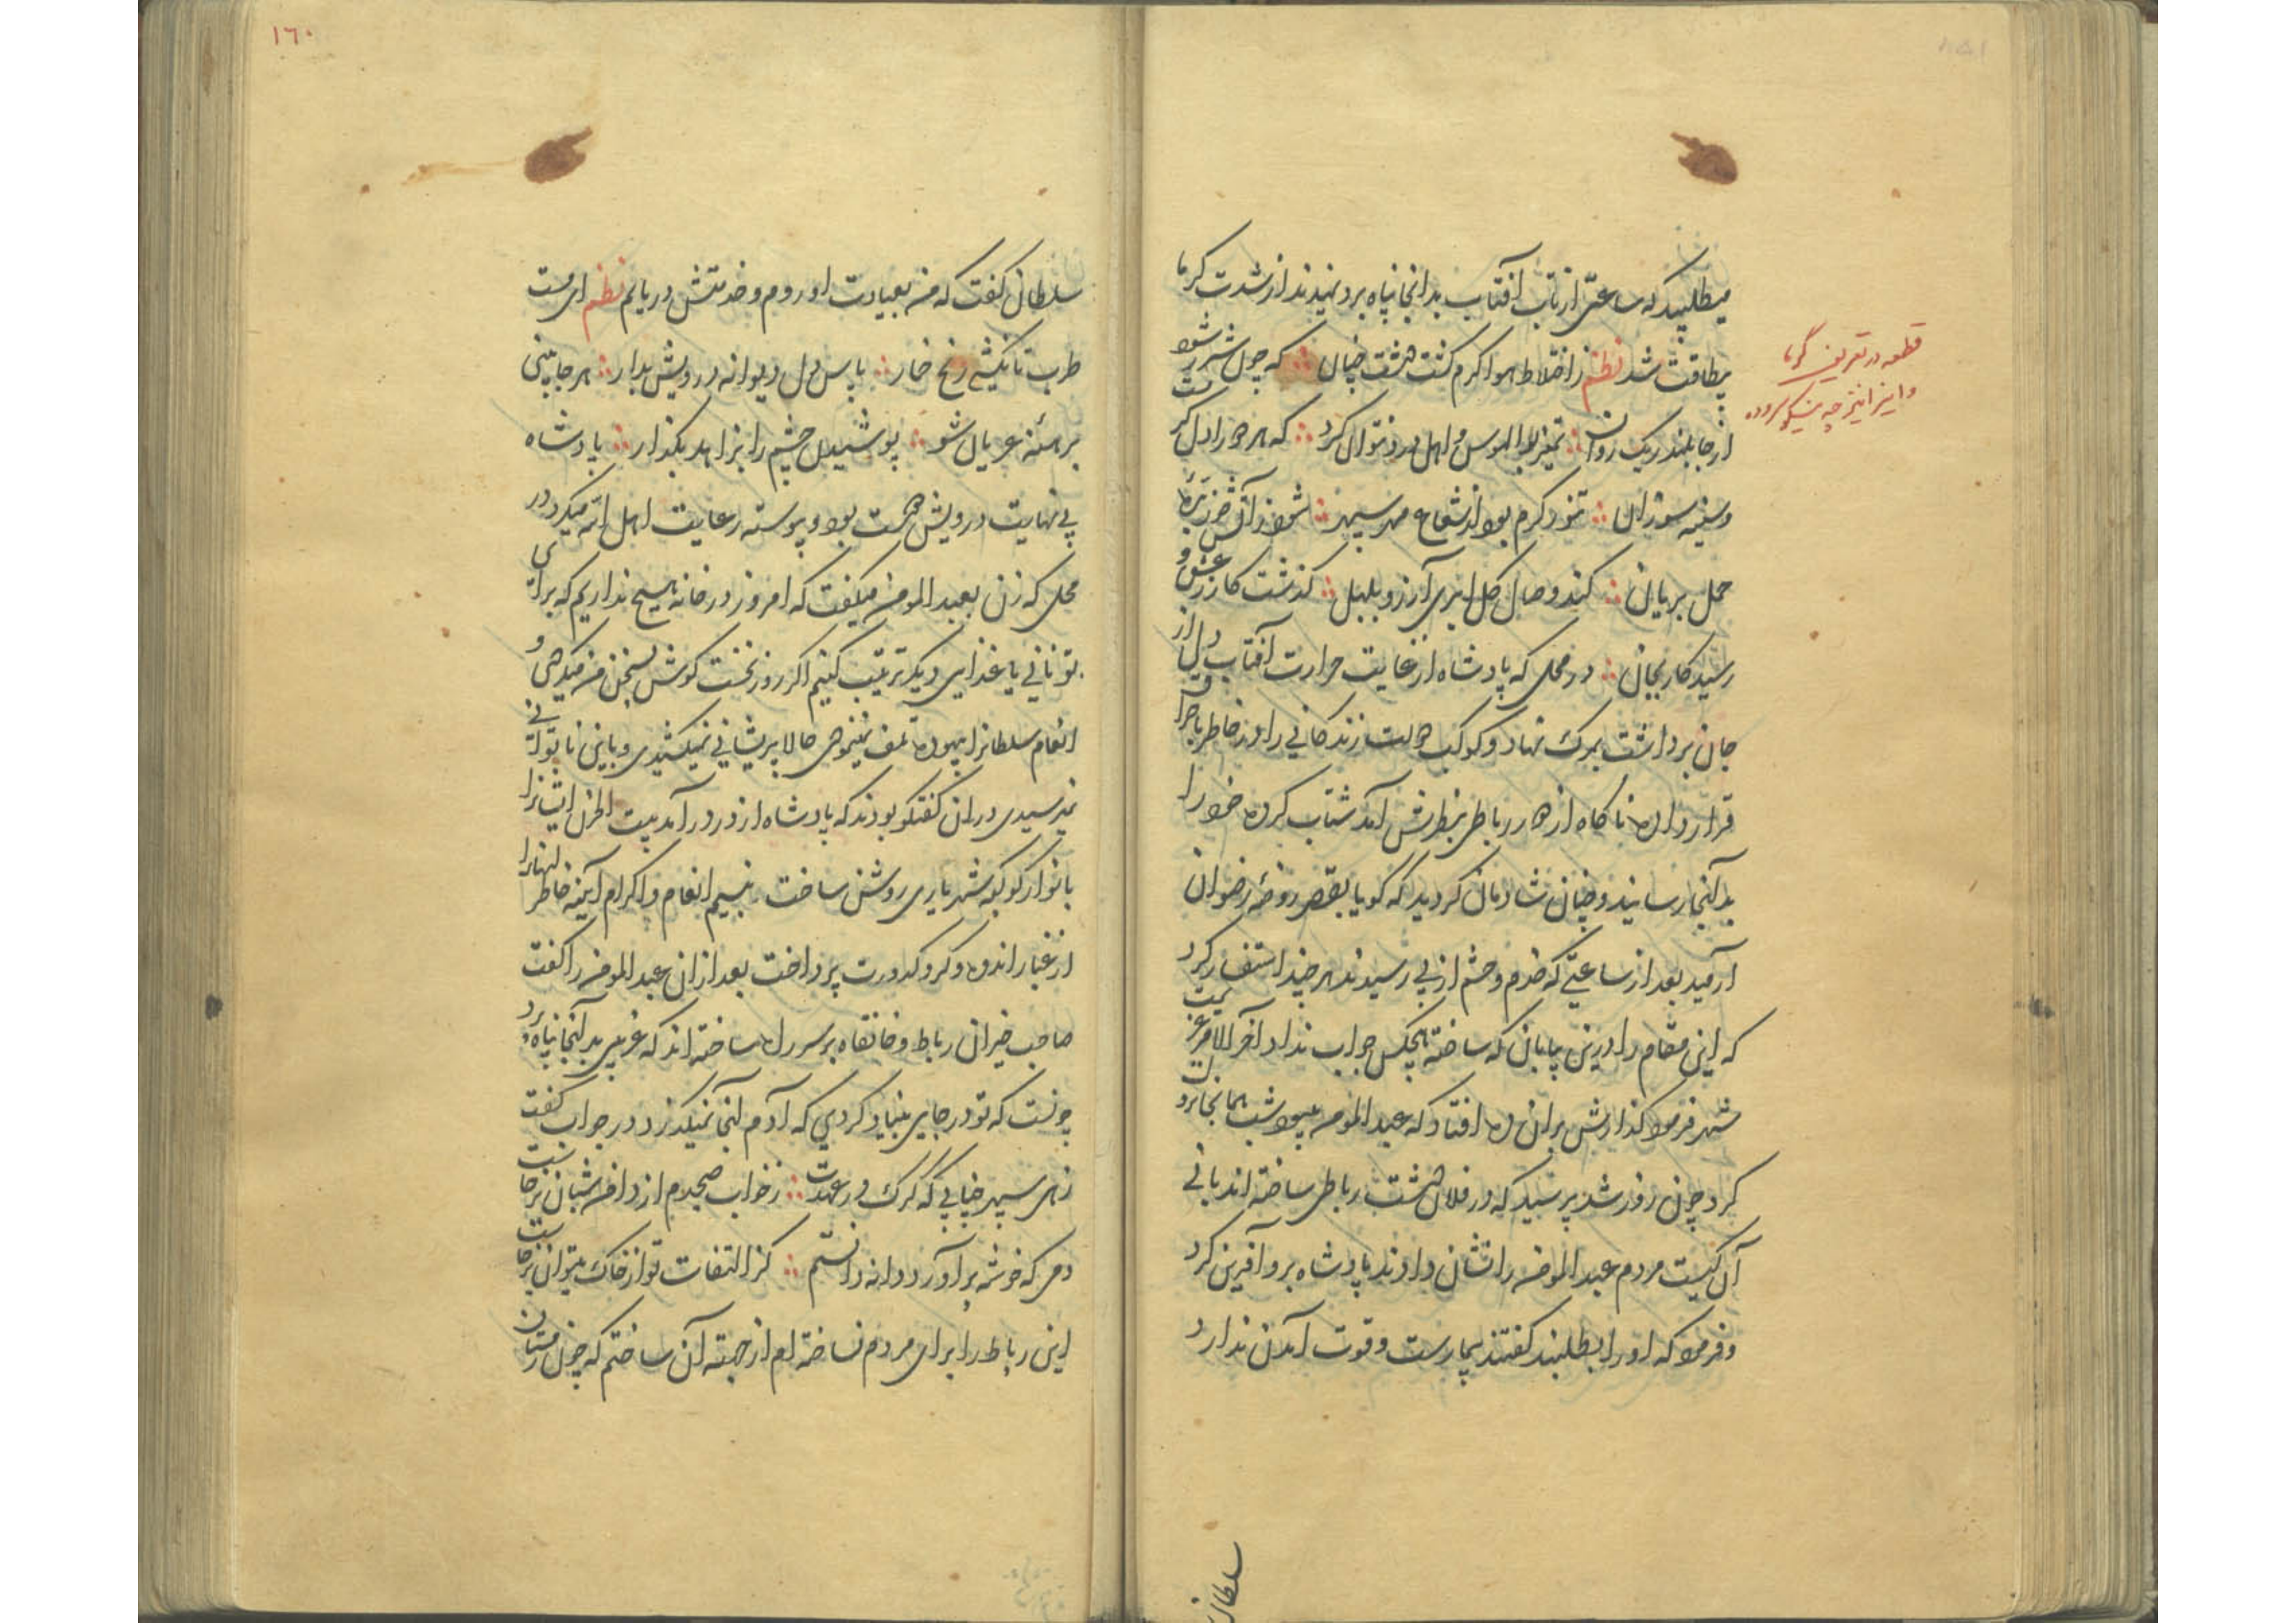 میطلبید که ساعتی از تاب آفتاب بدانجا پناه برد ندیدند از شدت کرما
بیطاقت شد نظم ز اختلاط هوا کرم کشت دشت چنان که چون شرر شود
از جا بلند ریک روان تمیز بوالهوس و اهل درد نتوان کرد که هر که را دل کرمست
و سینه سوزان تنور کرم بود از شعاع مهر سپهر شود ز آتش خورشید بره
حمل بریان کند وصال کل ابری آرزو بلبل کذشت کار ز عشق و
رسید کار بجان در محلی که پادشاه از غایت حرارت آفتاب دل از
جان برداشت بمرک نهاد و کوکب دولت زندکانی را در خاطر با حراق
قرار داده ناکاه از دور رباطی بنظرش آمد شتاب کرده خود را
بدآنجا رسانید و چنان شادمان کردید که کویا بقصر روضه رضوان
آرمید بعد از ساعتی که خدم و حشم از پی رسیدند هر چند استفسار کرد
که این مقام را درین بیابان که ساخته هیچکس جواب نداد آخر الامر عزیمت
شهر فرمود کذارش بران ده افتاد که عبد المومن می بود شب همانجا نزول
کرد چون روز شد پرسید که در فلان دشت رباطی ساخته اند بانی
آن کیست مردم عبد المومن را نشان دادند پادشاه برو آفرین کرد
و فرمود که او را بطلبند کفتند بیمارست و قوت آمدن ندارد
سلطان
قطعه در تعریف کرما
و این را نیز چه نیکو سروده
١٦٠
سلطان کفت که من بعیادت او روم و خدمتش دریابم نظم ای مست
طرب تا نکشی رنج خمار پاس دل دیوانه و درویش بدار هر جا بینی
برهنه عریان شو پوشیدن چشم را بزاهد بکذار پادشاه
بی نهایت درویش دوست بود و پیوسته رعایت اهل الله میکرد در
محلی که زن بعبد المومن میکفت که امروز در خانه هیچ نداریم که برای
تو نانی یا غذایی دیکر ترتیب کنیم اکر روز نخست کوش بسخن من میکردی و
انعام سلطانرا بیهوده تلف نمینمودی حالا پریشانی نمیکشیدی و باین ناتوانی
نمیرسیدی دران کفتکو بودند که پادشاه از در درآمد بیت الحزن ایشانرا
بانوار کوکبه شهریاری روشن ساخت بنسیم انعام و اکرام آیینه خاطر انهارا
از غبار اندوه و کرد کدورت پرداخت بعد ازان عبد المومن را کفت
صاحب خیران رباط و خانقاه بر سر راه ساخته اند که غریبی بدآنجا پناه برد
چونست که تو در جایی بنیاد کردی که آدم آنجا نمیکذرد در جواب کفت
زهی سپهر جنابی که کرک در عهدت ز خواب صبحدم از دامن شبان برخاست
دمی که خوشه برآورد دانه دانستم کز التفات تو از خاک میتوان برخاست
این رباط را برای مردم نساخته ام از جهته آن ساختم که چون زمستان